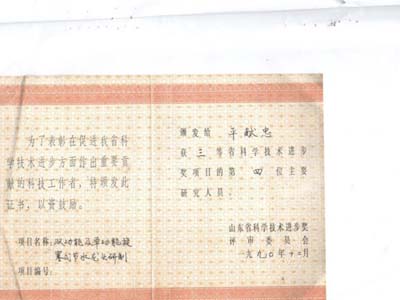 为了表彰在促进我省科
学技术进步方面作出重要贡
献的科技工作者，特颁发此
证书，以资鼓励。
项目名称：双功能及单功能旋
塞词节水龙头研制
项目编号：
颁发给 平献忠
获 三 等省科学技术进步
奖项目的第 四 位主要
研究人员。
山东省科学技术进步奖
评审委员会
一九九〇年十二月